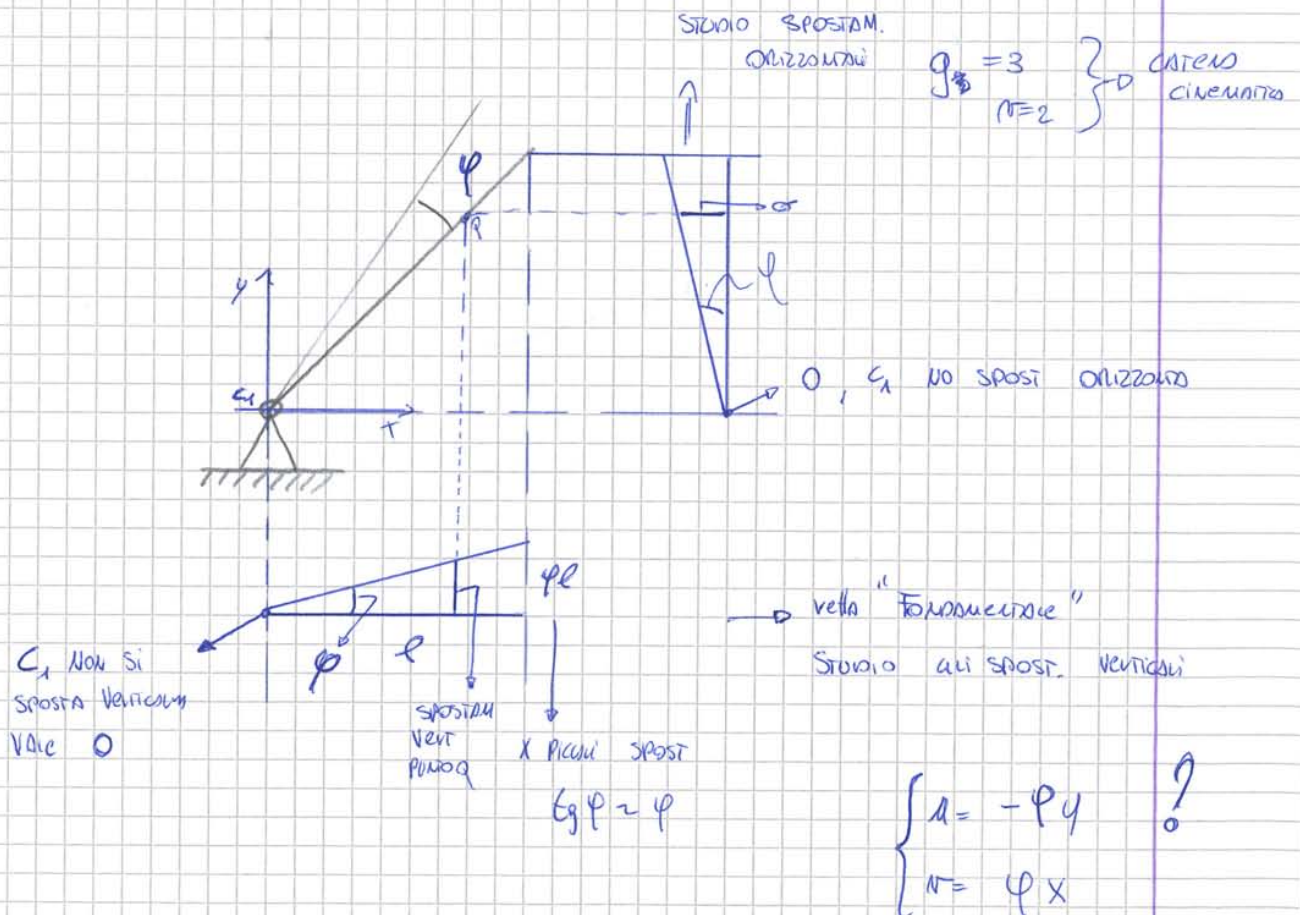 STUDIO SPOSTAM.
ORIZZONTALI
g = 3
v = 2
CATENA
CINEMATICA
φ
Q
y
φ
C₁
O, C₁ NO SPOST ORIZZONTA
φl
retta "FONDAMENTALE"
STUDIO GLI SPOST. VERTICALI
φ
l
C₁ NON SI
SPOSTA VERTICALM
VALE 0
SPOSTAM
VERT
PUNTO Q
X PICCOLI SPOST
tg φ ~ φ
u = -φy
?
v = φx